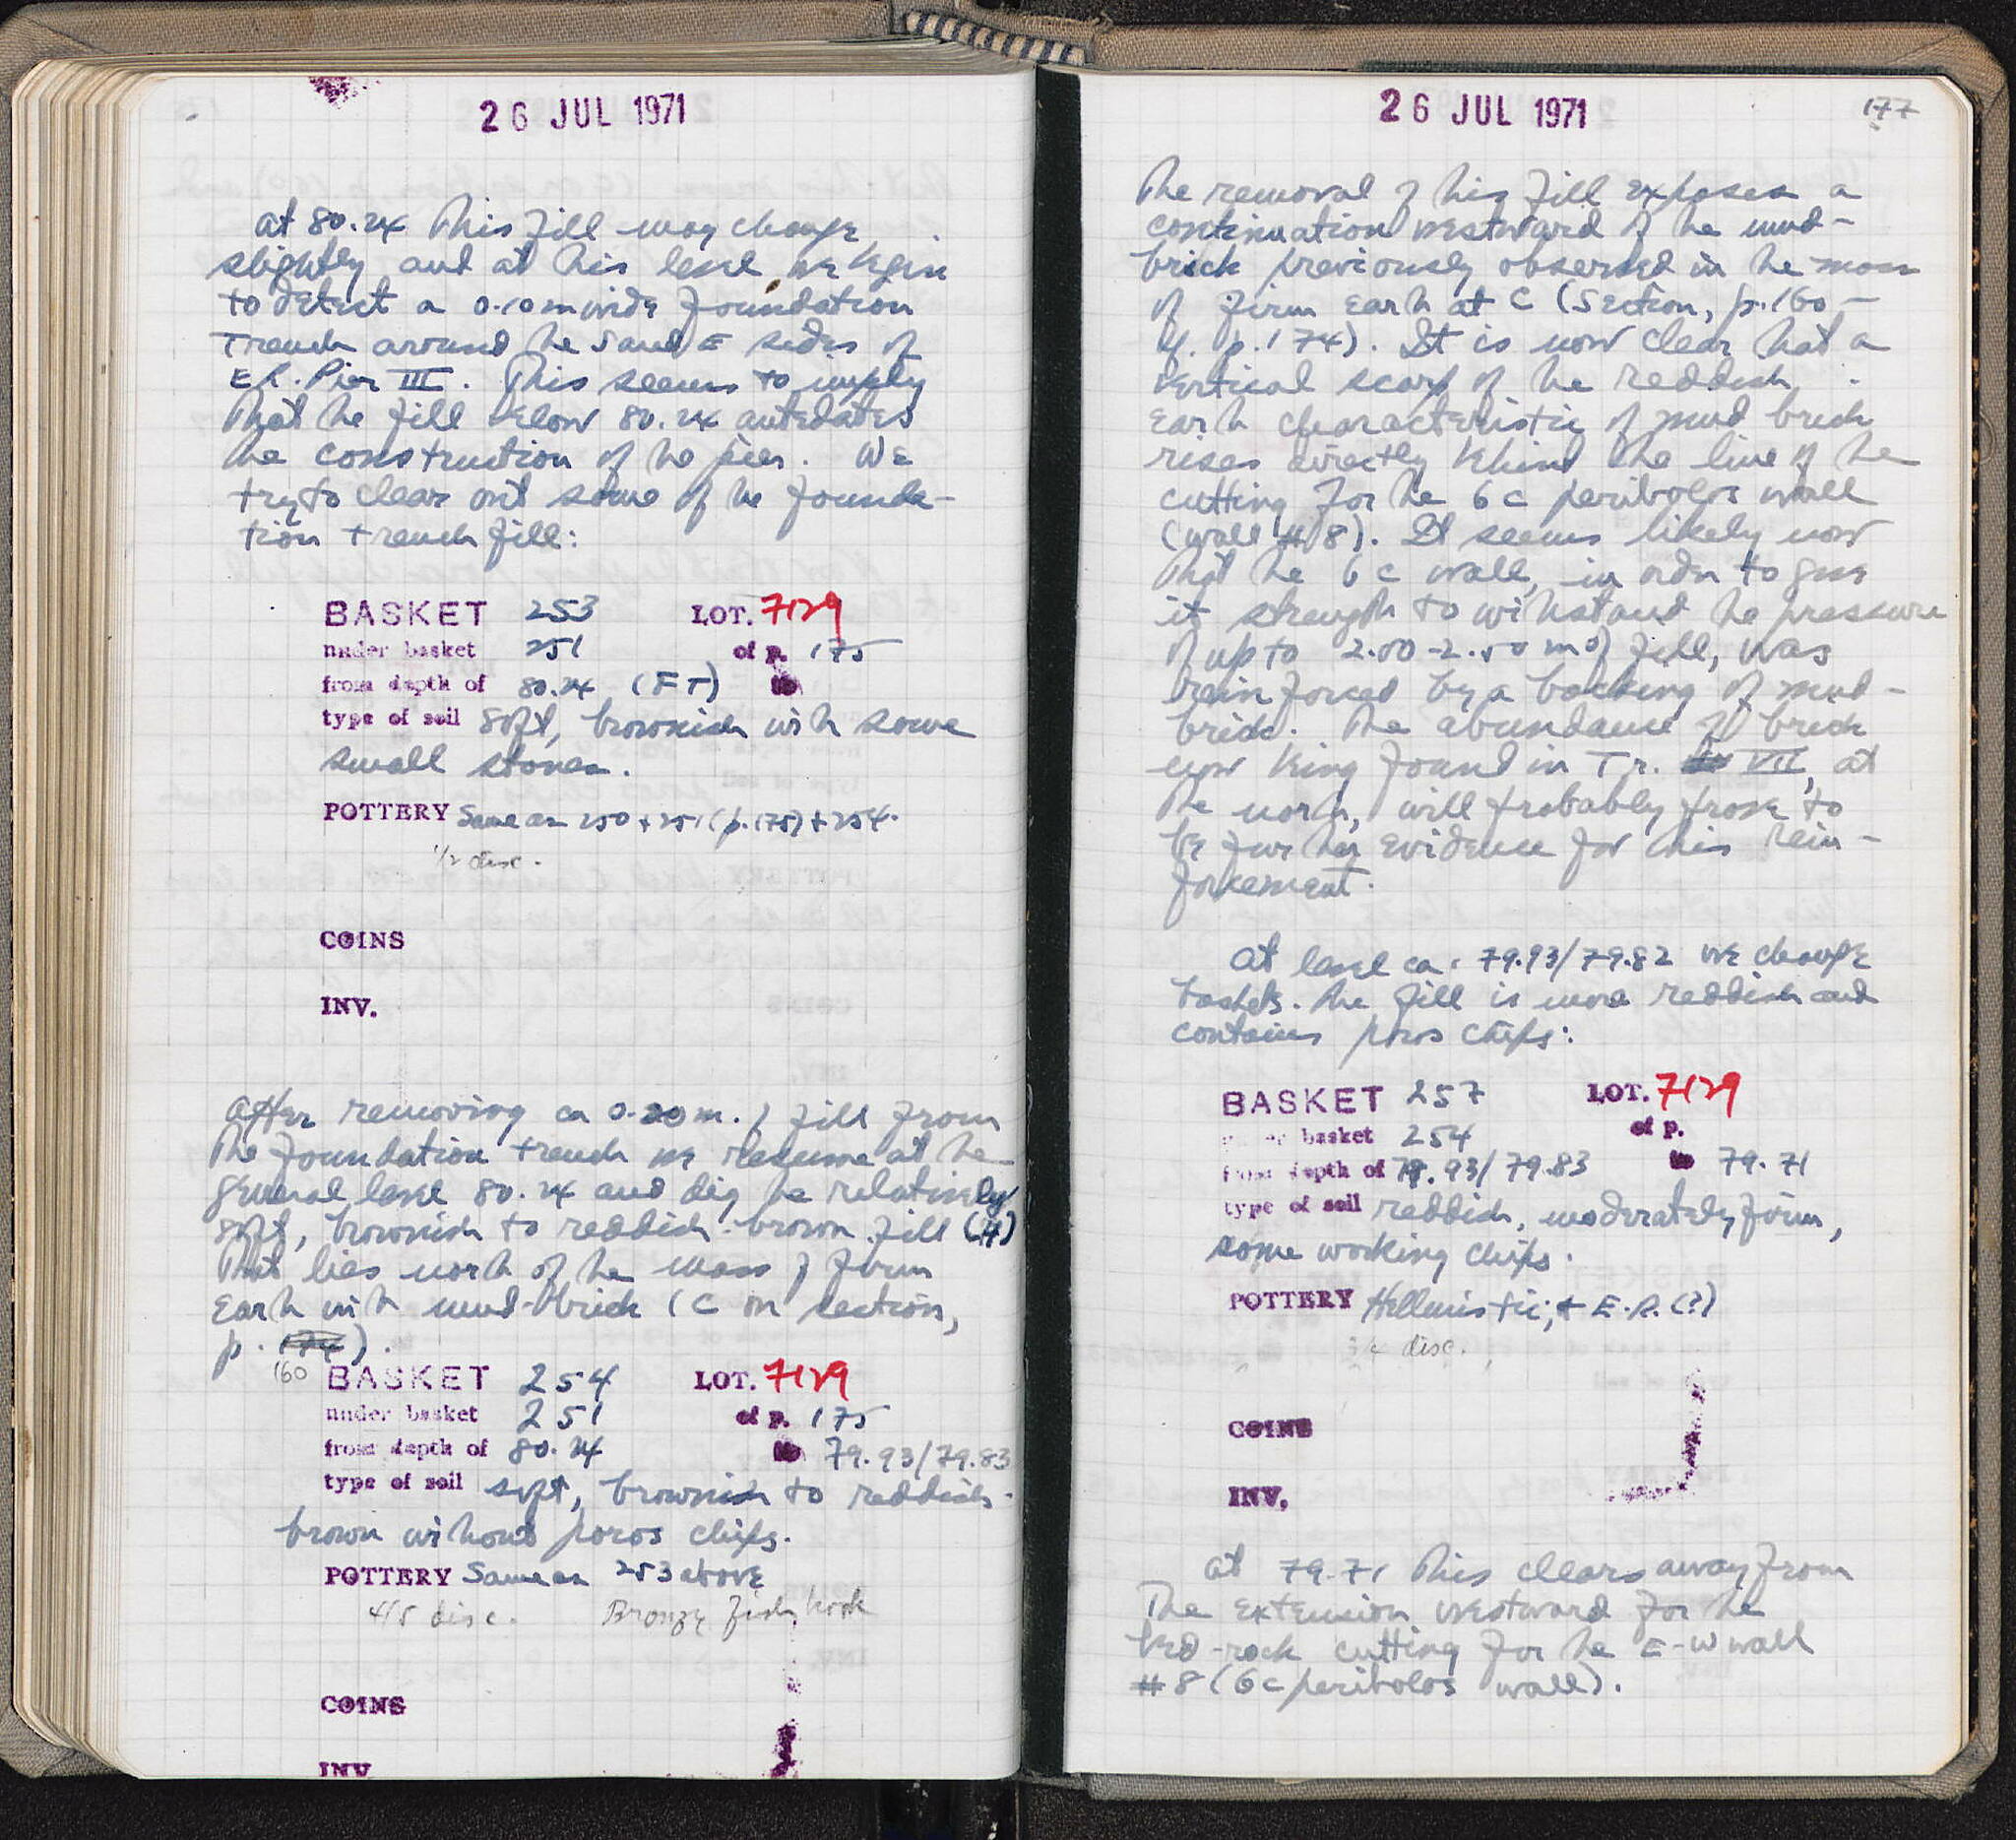 26 JUL 1971
At 80.24 this fill may change
slightly and at this level we begin
to detect a 0.10 m wide foundation
trench around the S and E sides of
E.R. Pier III. This seems to imply
that the fill below 80.24 antedates
the construction of the pier. We
try to clear out some of the founda-
tion trench fill:
BASKET 253 LOT. 7129
under basket 251 of p. 175
from depth of 80.24 (FT) to
type of soil soft, brownish with some
small stones.
POTTERY Same as 250 + 251 (p. 175) + 254.
1/2 disc.
COINS
INV.
After removing ca 0.20 m. of fill from
the foundation trench we resume at the
general level 80.24 and dig the relatively
soft, brownish to reddish-brown fill (H)
that lies north of the mass of firm
earth with mud-brick (C on section,
p. 174).
160
BASKET 254 LOT. 7129
under basket 251 of p. 175
from depth of 80.24 to 79.93/79.83
type of soil soft, brownish to reddish-
brown without poros chips.
POTTERY Same as 253 above
4/5 disc. Bronze fish hook
COINS
INV
26 JUL 1971
177
The removal of this fill exposes a
continuation westward of the mud-
brick previously observed in the mass
of firm earth at C (Section, p. 160 –
cf. p. 174). It is now clear that a
vertical scarp of the reddish
earth characteristic of mud brick
rises directly behind the line of the
cutting for the 6 c peribolos wall
(wall #8). It seems likely now
that the 6 c wall, in order to give
it strength to withstand the pressure
of up to 2.00-2.50 m of fill, was
reinforced by a backing of mud-
brick. The abundance of brick
now being found in Tr. VII, at
the north, will probably prove to
be further evidence for this rein-
forcement.
At level ca. 79.93/79.82 we change
baskets. The fill is more reddish and
contains poros chips:
BASKET 257 LOT. 7129
under basket 254 of p.
from depth of 79.93/79.83 to 79.71
type of soil reddish, moderately firm,
some working chips.
POTTERY Hellenistic; + E.R. (?)
disc.
COINS
INV.
At 79.71 this clears away from
the extension westward for the
bed-rock cutting for the E-W wall
#8 (6 c peribolos wall).